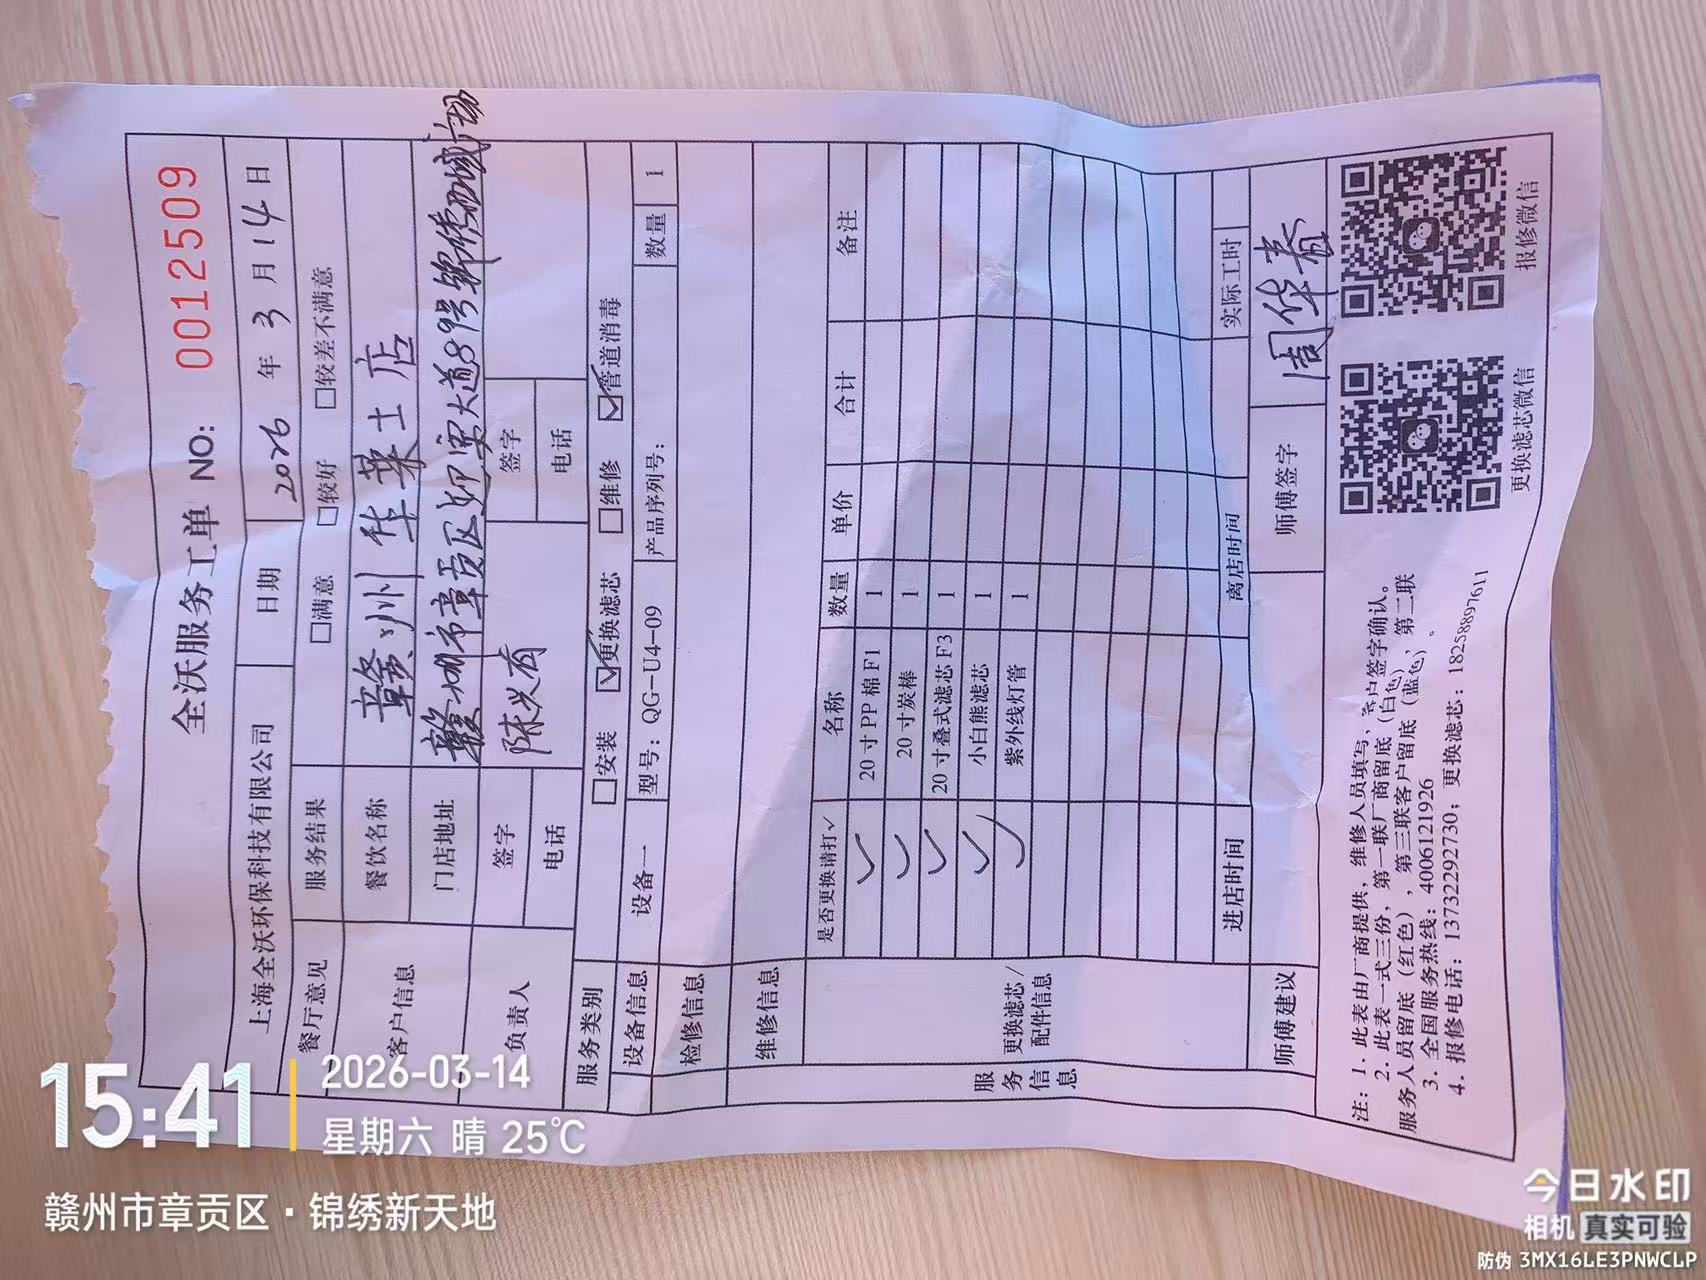 全沃服务工单 NO: 0012509
上海全沃环保科技有限公司 日期 2026 年 3 月 14 日
餐厅意见 服务结果 □满意 □较好 □较差不满意
客户信息 餐饮名称 赣州 士店
门店地址 赣州市章贡区迎宾大道89号锦绣
负责人 签字 陈 签字
电话 电话
服务类别 □安装 ☑更换滤芯 □维修 ☑管道消毒
设备信息 设备一 型号：QG-U4-09 产品序列号： 数量 1
检修信息
服务信息
维修信息
更换滤芯/配件信息
是否更换请打✓ 名称 数量 单价 合计 备注
✓ 20寸PP棉F1 1
✓ 20寸炭棒 1
✓ 20寸叠式滤芯F3 1
✓ 小白熊滤芯 1
✓ 紫外线灯管 1
进店时间 离店时间 实际工时
师傅建议 师傅签字 周华春
注：1. 此表由厂商提供，维修人员填写，客户签字确认。
2. 此表一式三份，第一联厂商留底（白色），第二联
服务人员留底（红色），第三联客户留底（蓝色）。
3. 全国服务热线：4006121926
4. 报修电话：13732292730；更换滤芯：18258897611
更换滤芯微信
报修微信
15:41
2026-03-14
星期六 晴 25℃
赣州市章贡区·锦绣新天地
今日水印
相机 真实可验
防伪 3MX16LE3PNWCLP